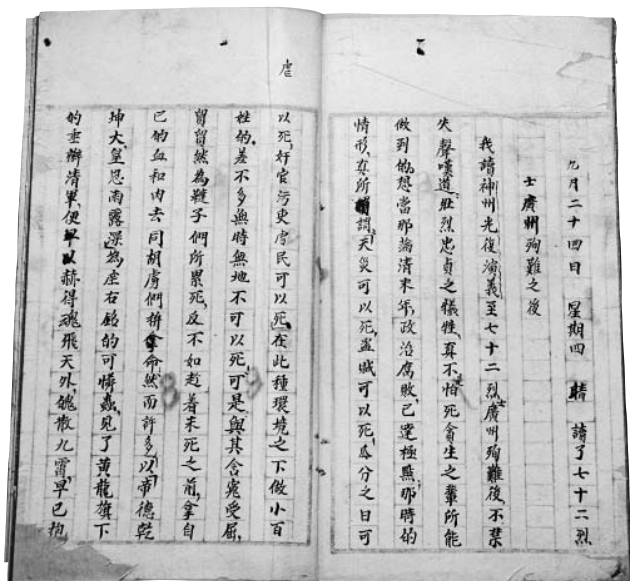 九月二十四日 星期四 晴 讀了七十二烈
士廣州殉難之後
我讀神州光復演義至七十二烈士廣州殉難後，不禁
失聲嘆道：壯烈忠貞之犧牲，真不怕死貪生之輩所能
做到的，想當那滿清末年，政治腐敗，已達極點，那時的
情形，真所謂，天災可以死，盜賊可以死，瓜分之日可
虐
以死，奸官污吏虐民可以死，在此種環境之下做小百
姓的，差不多無時無地不可以死，可是，與其含冤受屈，
留留然為韃子們所累死，反不如趁着未死之前，拿自
已的血和肉去同胡虜們拚命，然而許多以帝德乾
坤大，皇恩雨露深，為座右銘的可憐蟲，見了黃龍旗下
的垂辮清軍，便早以赫得魂飛天外，魄散九霄，早已抱